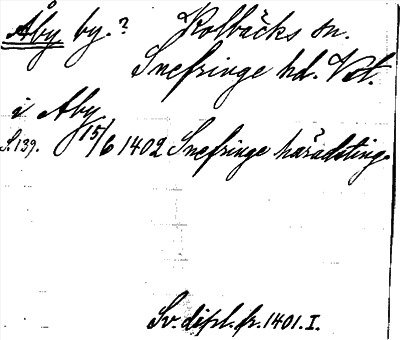 Åby by.? Kolbäcks sn.
Snefringe hd. Vst.
i Aby
S. 139. 15/6 1402 Snefringe häradsting.
Sv. dipl. fr. 1401. I.